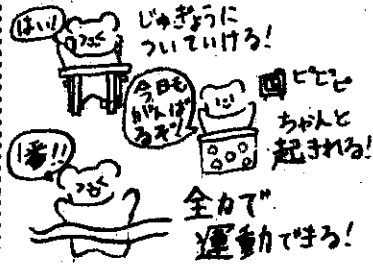 はい!
じゅぎょうに
ついていける!
今日も
がんば
るぞ!
ピピピ
ちゃんと
起きれる!
1番!!
全力で
運動できる!